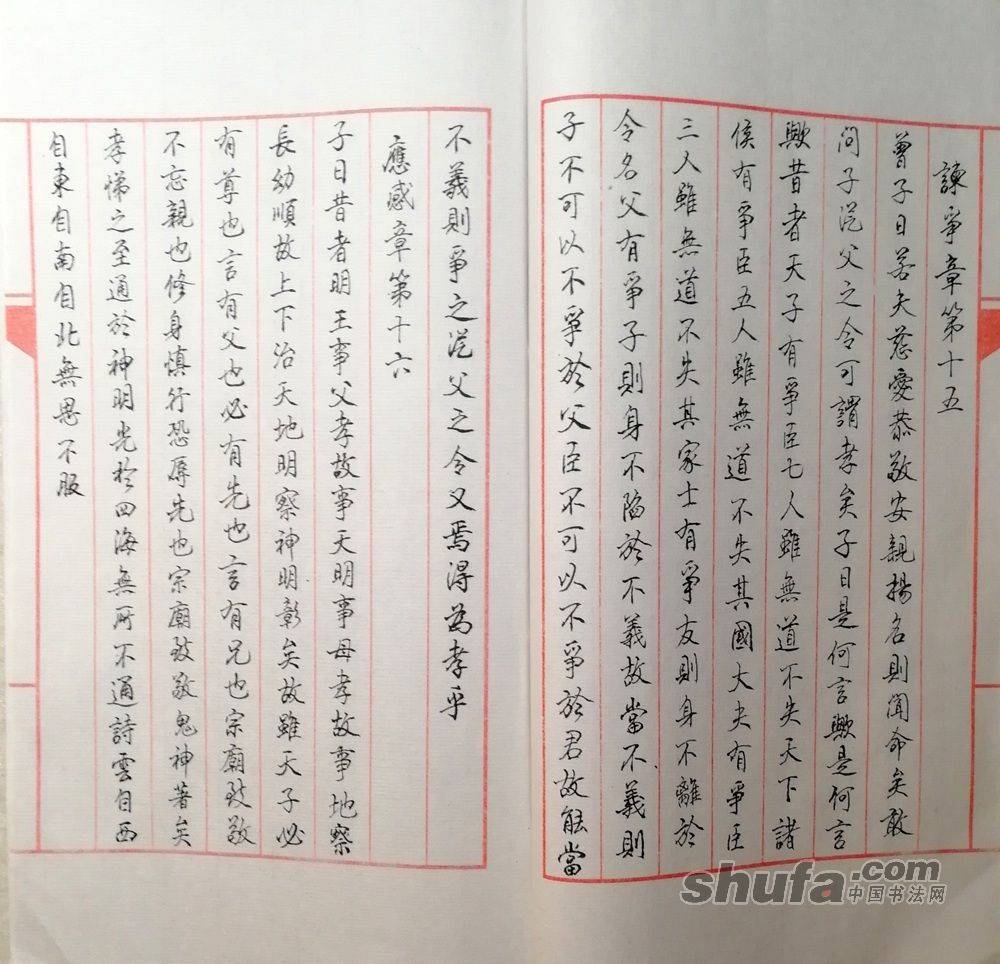 諫爭章第十五
曾子曰若夫慈愛恭敬安親揚名則聞命矣敢
問子從父之令可謂孝矣子曰是何言歟是何言
歟昔者天子有爭臣七人雖無道不失天下諸
侯有爭臣五人雖無道不失其國大夫有爭臣
三人雖無道不失其家士有爭友則身不離於
令名父有爭子則身不陷於不義故當不義則
子不可以不爭於父臣不可以不爭於君故能當
不義則爭之從父之令又焉得為孝乎
應感章第十六
子曰昔者明王事父孝故事天明事母孝故事地察
長幼順故上下治天地明察神明彰矣故雖天子必
有尊也言有父也必有先也言有兄也宗廟致敬
不忘親也修身慎行恐辱先也宗廟致敬鬼神著矣
孝悌之至通於神明光於四海無所不通詩雲自西
自東自南自北無思不服
shufa.com
中国书法网